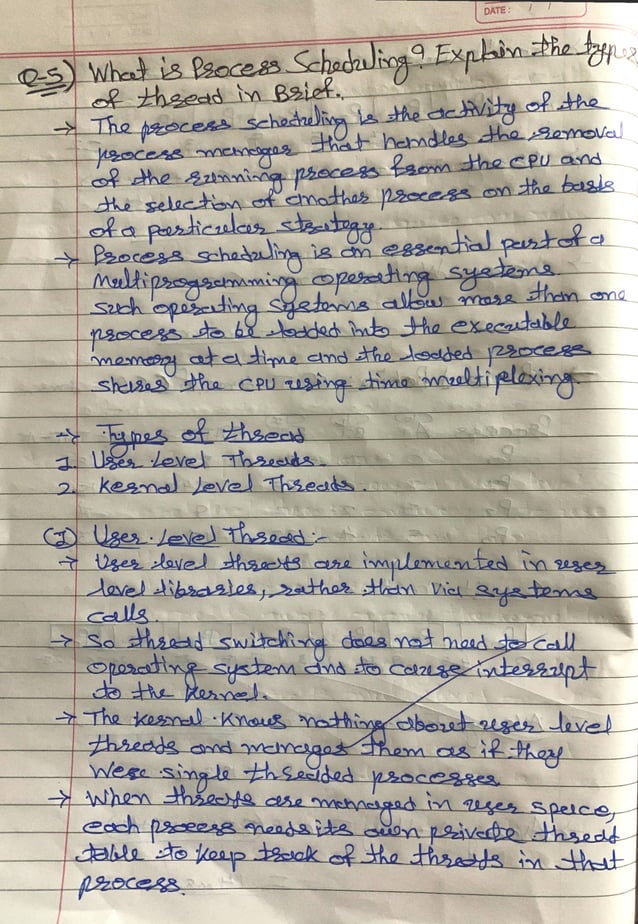 DATE: / /
Q-5) What is Process Scheduling? Explain the types
of thread in Brief.
→ The process scheduling is the activity of the
process manager that handles the removal
of the running process from the CPU and
the selection of another process on the basis
of a particular strategy.
→ Process scheduling is an essential part of a
Multiprogramming operating systems
such operating systems allow more than one
process to be loaded into the executable
memory at a time and the loaded process
shares the CPU using time multiplexing.
→ Types of thread
1. User Level Threads.
2. Kernal Level Threads.
(1) User Level Thread :-
→ User level threads are implemented in user
level libraries, rather than via systems
calls.
→ So thread switching does not need to call
operating system and to cause interrupt
to the Kernel.
→ The kernal knows nothing about user level
threads and manages them as if they
were single threaded processes.
→ When threads are managed in user space,
each process needs its own private thread
table to keep track of the threads in that
process.